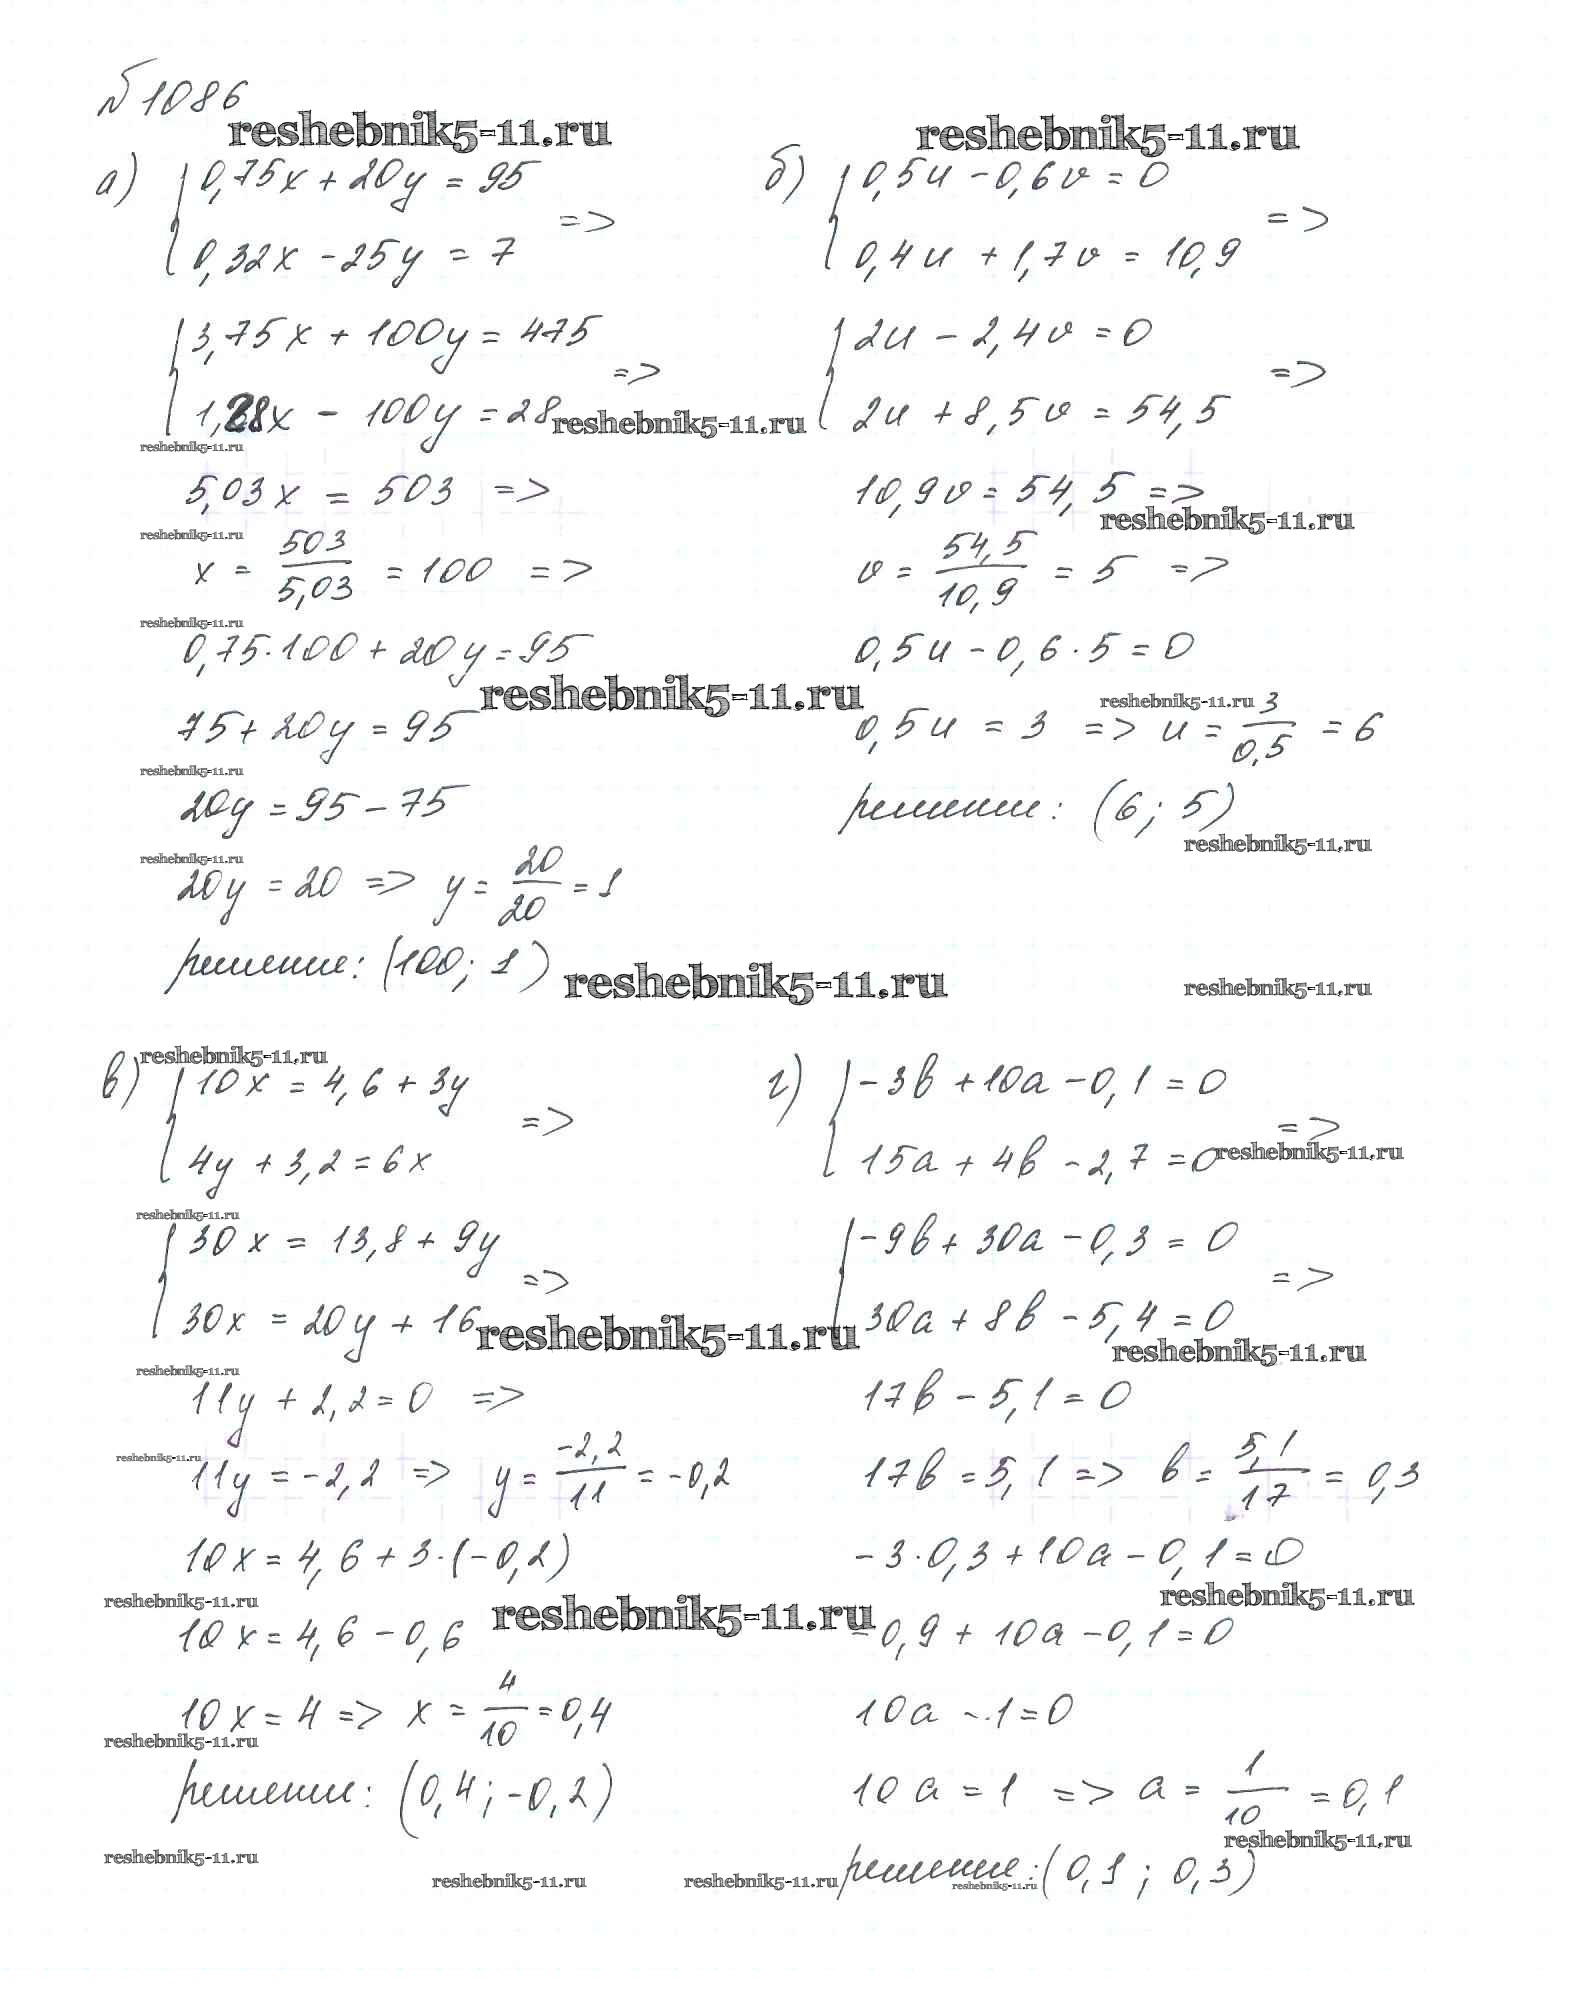 №1086
reshebnik5-11.ru
а) { 0,75x + 20y = 95
0,32x - 25y = 7 =>
{ 3,75x + 100y = 475
1,28x - 100y = 28 =>
reshebnik5-11.ru
reshebnik5-11.ru
5,03x = 503 =>
reshebnik5-11.ru
x = 503/5,03 = 100 =>
reshebnik5-11.ru
0,75·100 + 20y = 95
reshebnik5-11.ru
75 + 20y = 95
reshebnik5-11.ru
20y = 95 - 75
reshebnik5-11.ru
20y = 20 => y = 20/20 = 1
решение: (100; 1)
reshebnik5-11.ru
reshebnik5-11.ru
б) { 0,5u - 0,6v = 0
0,4u + 1,7v = 10,9 =>
{ 2u - 2,4v = 0
2u + 8,5v = 54,5 =>
10,9v = 54,5 =>
reshebnik5-11.ru
v = 54,5/10,9 = 5 =>
0,5u - 0,6·5 = 0
reshebnik5-11.ru
0,5u = 3 => u = 3/0,5 = 6
решение: (6; 5)
reshebnik5-11.ru
reshebnik5-11.ru
reshebnik5-11.ru
в) { 10x = 4,6 + 3y
4y + 3,2 = 6x =>
reshebnik5-11.ru
{ 30x = 13,8 + 9y
30x = 20y + 16 =>
reshebnik5-11.ru
reshebnik5-11.ru
11y + 2,2 = 0 =>
reshebnik5-11.ru
11y = -2,2 => y = -2,2/11 = -0,2
10x = 4,6 + 3·(-0,2)
reshebnik5-11.ru
reshebnik5-11.ru
10x = 4,6 - 0,6
10x = 4 => x = 4/10 = 0,4
reshebnik5-11.ru
решение: (0,4; -0,2)
reshebnik5-11.ru
reshebnik5-11.ru
г) { -3b + 10a - 0,1 = 0
15a + 4b - 2,7 = 0 =>
reshebnik5-11.ru
{ -9b + 30a - 0,3 = 0
30a + 8b - 5,4 = 0 =>
reshebnik5-11.ru
17b - 5,1 = 0
17b = 5,1 => b = 5,1/17 = 0,3
-3·0,3 + 10a - 0,1 = 0
reshebnik5-11.ru
-0,9 + 10a - 0,1 = 0
10a - 1 = 0
10a = 1 => a = 1/10 = 0,1
reshebnik5-11.ru
решение: (0,1; 0,3)
reshebnik5-11.ru
reshebnik5-11.ru